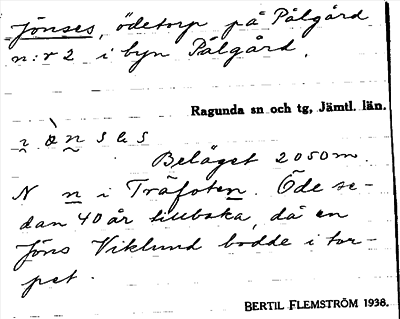 Jönses, ödetorp på Pålgård
n:r 2 i byn Pålgård.
Ragunda sn och tg, Jämtl. län.
Beläget 2050 m.
N n i Träfoten. Öde se-
dan 40 år tillbaka, då en
Jöns Viklund bodde i tor-
pet.
BERTIL FLEMSTRÖM 1938.